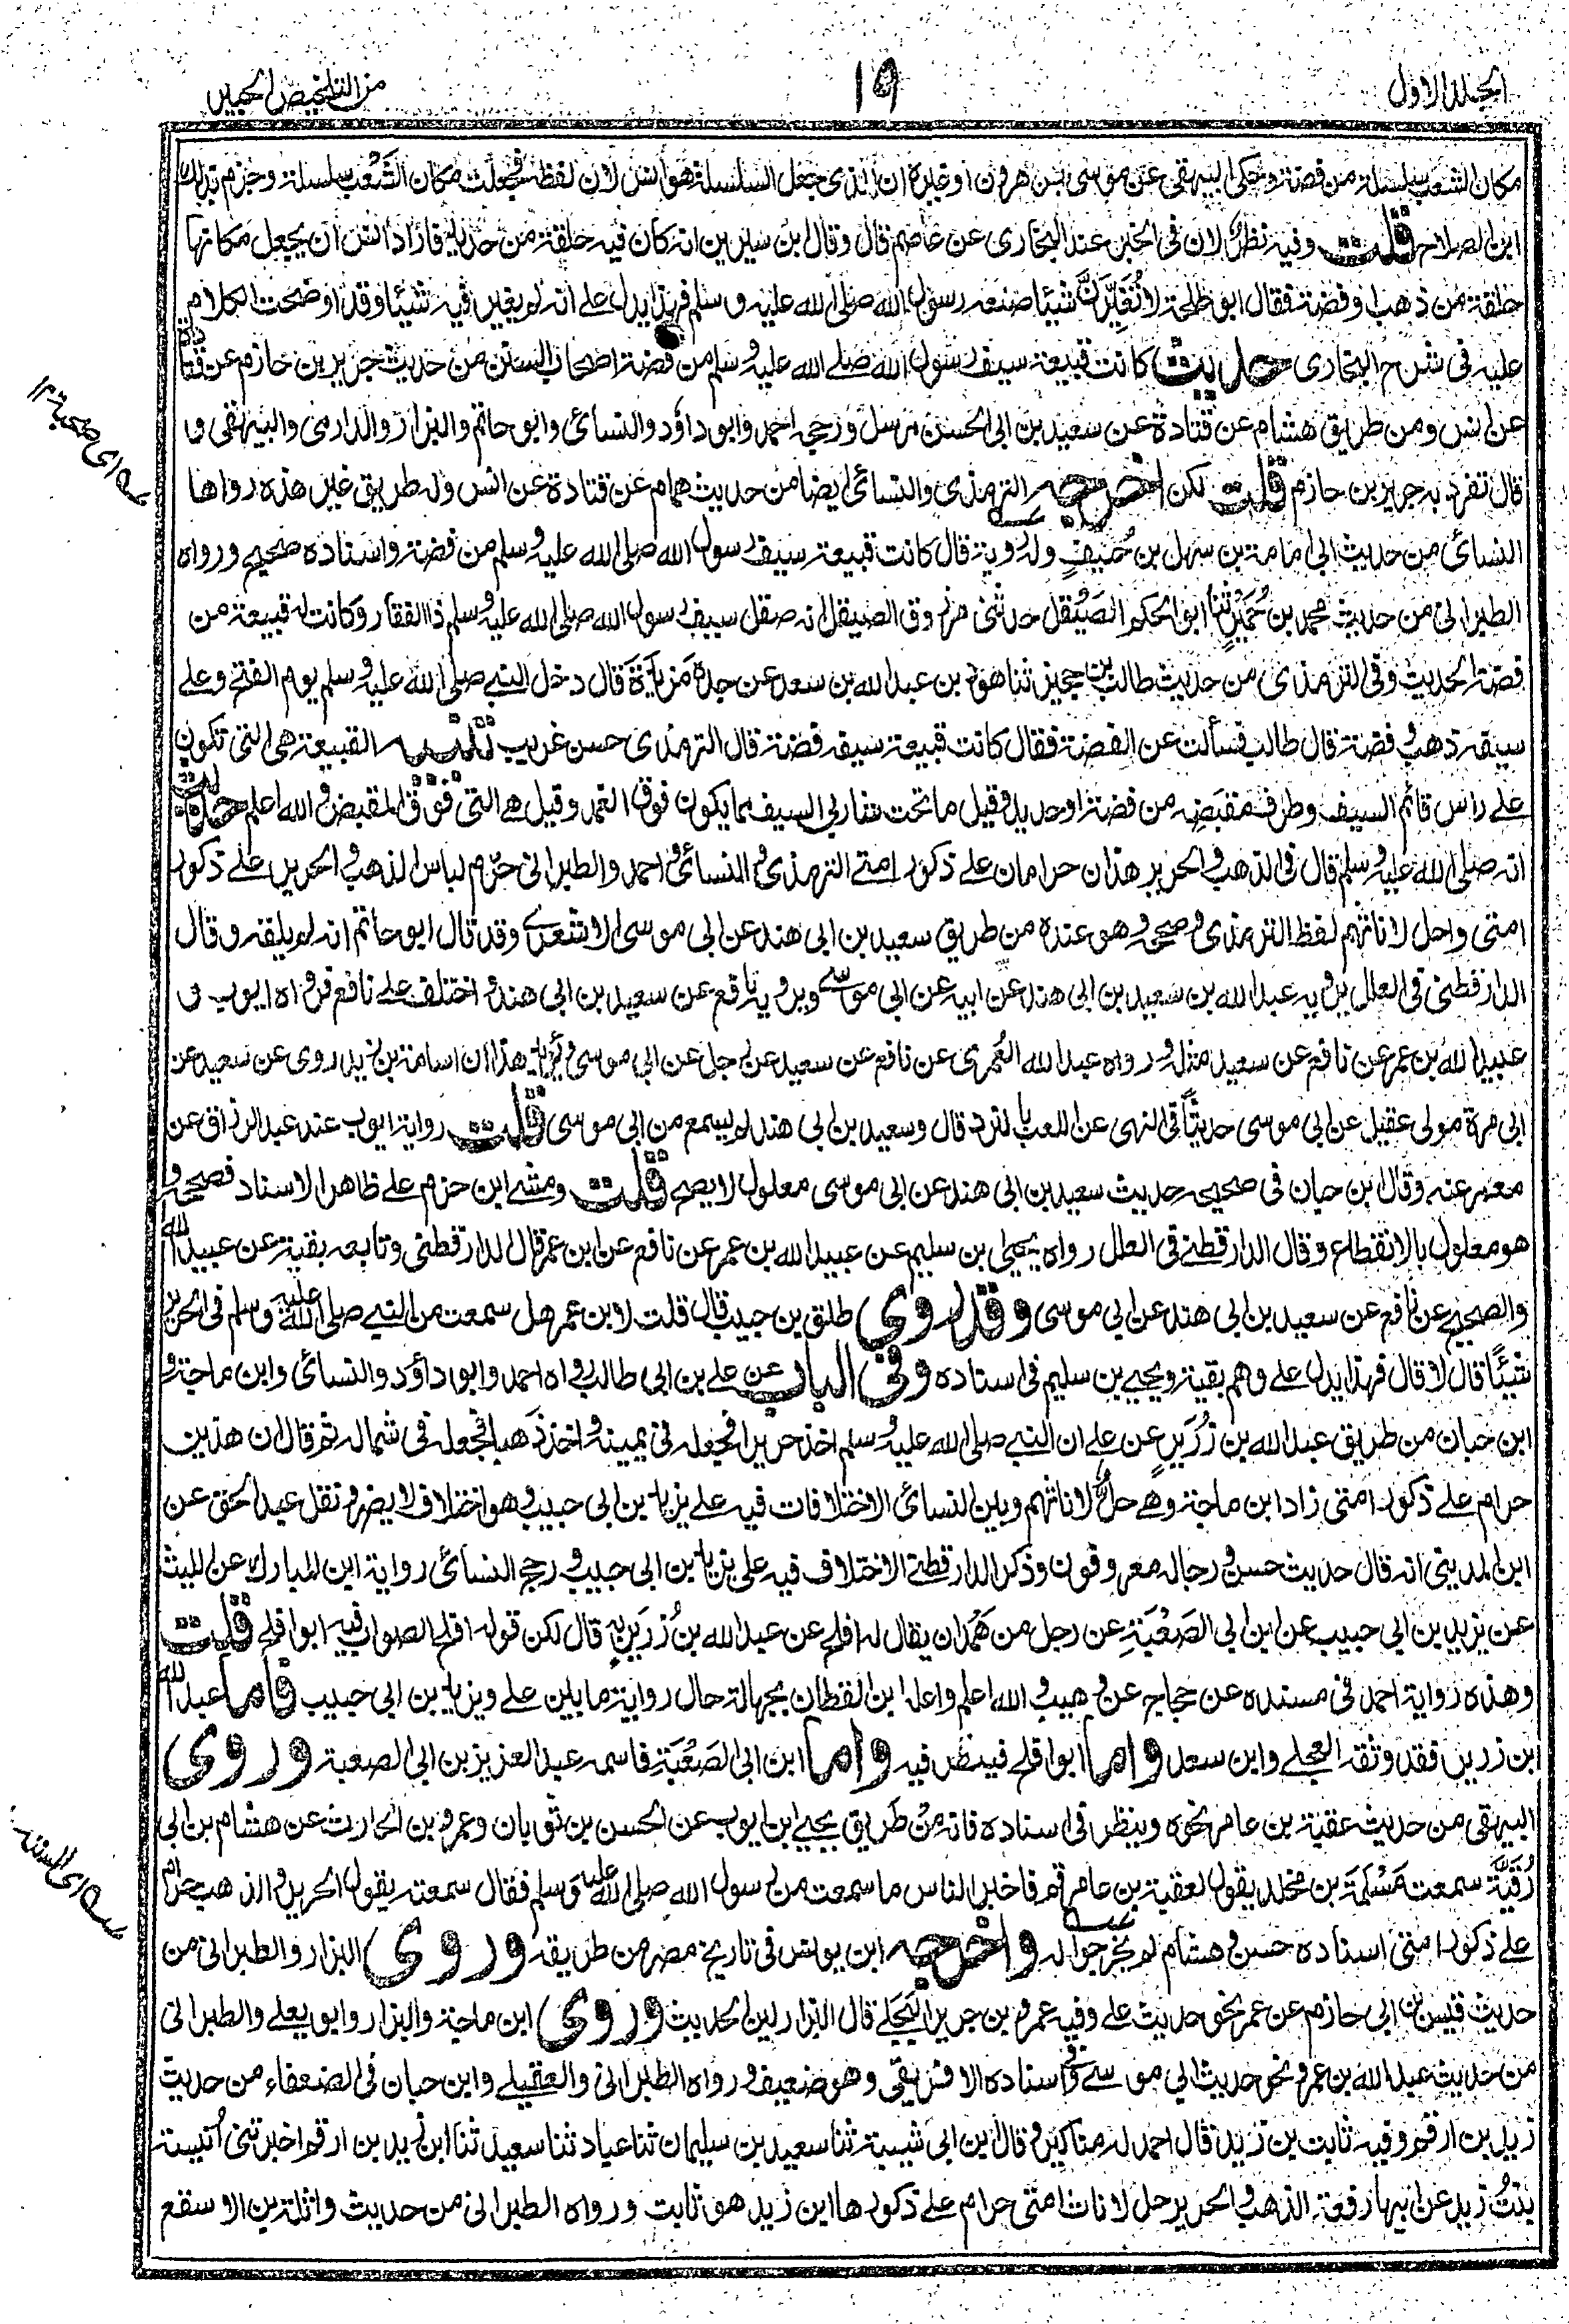 المجلد الاول
١٩
من التلخيص الحبير
مكان الشعب سلسلة من فضة وحكى البيهقى عن موسى بن هرون او غيره ان الذى جعل السلسلة هو انس لان لفظه فجعلت مكان الشَّعْب سلسلة وجزم بذلك
ابن الصلاح قلت وفيه نظر لان فى الخبر عند البخارى عن عاصم قال وقال ابن سيرين انه كان فيه حلقة من حديد فاراد انس ان يجعل مكانها
حلقة من ذهب او فضة فقال ابو طلحة لا تُغَيِّرَنَّ شيئا صنعه رسول الله صلى الله عليه وسلم فهذا يدل على انه لم يغير فيه شيئا وقد اوضحت الكلام
عليه فى شرح البخارى حديث كانت قبيعة سيف رسول الله صلى الله عليه وسلم من فضة اصحاب السنن من حديث جرير بن حازم عن قتادة
عن انس ومن طريق هشام عن قتادة عن سعيد بن ابى الحسن مرسل ورجحه احمد وابو داؤد والنسائى وابو حاتم والبزار والدارمى والبيهقى و
قال تفرد به جرير بن حازم قلت لكن اخرجه الترمذى والنسائى ايضا من حديث همام عن قتادة عن انس وله طريق غير هذه رواها
النسائى من حديث ابى امامة بن سهل بن حُنَيفٍ وله روية قال كانت قبيعة سيف رسول الله صلى الله عليه وسلم من فضة واسناده صحيح ورواه
الطبرانى من حديث محمد بن حُمَيْرٍ ثنا ابو الحكم الصَيْقَل حدثنى مرزوق الصيقل انه صقل سيف رسول الله صلى الله عليه وسلم ذا الفقار وكانت له قبيعة من
فضة الحديث وفى الترمذى من حديث طالب بن حجير ثنا هود بن عبد الله بن سعد عن جده مَزِيْدَةَ قال دخل النبى صلى الله عليه وسلم يوم الفتح وعلى
سيفه ذهب وفضة قال طالب فسألت عن الفضة فقال كانت قبيعة سيفه فضة قال الترمذى حسن غريب تنبيه القبيعة هى التى تكون
على راس قائم السيف وطرف مقبضه من فضة او حديد وقيل ما تحت شاربى السيف مما يكون فوق الغمد وقيل هى التى فوق المقبض والله اعلم حديث
انه صلى الله عليه وسلم قال فى الذهب والحرير هذان حرامان على ذكور امتى الترمذى والنسائى واحمد والطبرانى حرّم لباس الذهب والحرير على ذكور
امتى واحل لاناثهم لفظ الترمذى وصححه وهو عنده من طريق سعيد بن ابى هند عن ابى موسى الاشعرى وقد قال ابو حاتم انه لم يلقه وقال
الدارقطنى فى العلل يرويه عبد الله بن سعيد بن ابى هند عن ابيه عن ابى موسى ويرويه نافع عن سعيد بن ابى هند واختلف على نافع فرواه ايوب و
عبيد الله بن عمر عن نافع عن سعيد مثله ورواه عبد الله العُمرى عن نافع عن سعيد عن رجل عن ابى موسى ويؤيد هذا ان اسامة بن زيد روى عن سعيد عن
ابى مرة مولى عقيل عن ابى موسى حديثًا فى النهى عن اللعب بالنرد قال وسعيد بن ابى هند لم يسمع من ابى موسى قلت رواية ايوب عند عبد الرزاق عن
معمر عنه وقال ابن حبان فى صحيحه حديث سعيد بن ابى هند عن ابى موسى معلول لا يصح قلت ومشى ابن حزم على ظاهر الاسناد فصححه و
هو معلول بالانقطاع وقال الدارقطنى فى العلل رواه يحيى بن سليم عن عبيد الله بن عمر عن نافع عن ابن عمر قال الدارقطنى وتابعه بقية عن عبيد الله
والصحيح عن نافع عن سعيد بن ابى هند عن ابى موسى وقد روى طلق بن حبيب قال قلت لابن عمر هل سمعت من النبى صلى الله عليه وسلم فى الحرير
شيئًا قال لا قال فهذا يدل على وهم بقية ويحيى بن سليم فى اسناده وفى الباب عن على بن ابى طالب رواه احمد وابو داؤد والنسائى وابن ماجة و
ابن حبان من طريق عبد الله بن زُرَيرٍ عن على ان النبى صلى الله عليه وسلم اخذ حريرا فجعله فى يمينه واخذ ذهبا فجعله فى شماله ثم قال ان هذين
حرام على ذكور امتى زاد ابن ماجة وهى حلٌّ لاناثهم وبين النسائى الاختلافات فيه على يزيد بن ابى حبيب وهو اختلاف لا يضر ونقل عبد الحق عن
ابن المدينى انه قال حديث حسن ورجاله معروفون وذكر الدارقطنى الاختلاف فيه على يزيد بن ابى حبيب ورجح النسائى رواية ابن المبارك عن الليث
عن يزيد بن ابى حبيب عن ابن ابى الصَعْبَةِ عن رجل من هَمْدان يقال له افلح عن عبد الله بن زُرَيرٍ به قال لكن قوله افلح الصواب فيه ابو افلح قلت
وهذه رواية احمد فى مسنده عن حجاج عن وهيب والله اعلم واعله ابن القطان بجهالة حال رواية ما بين على ويزيد بن ابى حبيب فاما عبد الله
ابن زرير فقد وثقه العجلى وابن سعد واما ابو افلح فينظر فيه واما ابن ابى الصَعْبَةِ فاسمه عبد العزيز بن ابى الصعبة وروى
البيهقى من حديث عقبة بن عامر نحوه وينظر فى اسناده فانه مِنْ طَريق يحيى ابن ايوب عن الحسن بن ثوبان وعمرو بن الحارث عن هشام بن ابى
رُقَيَّة سمعت مَسْلَمَة بن مخلد يقول لعقبة بن عامر قم فاخبر الناس ما سمعت من رسول الله صلى الله عليه وسلم فقال سمعته يقول الحرير والذهب حرام
على ذكور امتى اسناده حسن وهشام لم يخرجوا له واخرجه ابن يونس فى تاريخ مصر من طريقه وروى البزار والطبرانى من
حديث قيس بن ابى حازم عن عمر نحو حديث على وفيه عمرو بن جرير البَجَلى قال البزار لين الحديث وروى ابن ماجة والبزار وابو يعلى والطبرانى
من حديث عبد الله بن عمرو نحو حديث ابى موسى وفى اسناده الافريقى وهو ضعيف ورواه الطبرانى والعقيلى وابن حبان فى الضعفاء من حديث
زيد بن ارقم وفيه ثابت بن زيد قال احمد له مناكير وقال ابن ابى شيبة ثنا سعيد بن سليمان ثنا عباد ثنا سعيد ثنا ابن زيد بن ارقم اخبرتنى اُنَيسة
بنتُ زيد عن ابيها رفعته الذهب والحرير حل لاناث امتى حرام على ذكورها ابن زيد هو ثابت ورواه الطبرانى من حديث واثلة بن الاسقع
سه اى صحبة ١٢
سه اى السند